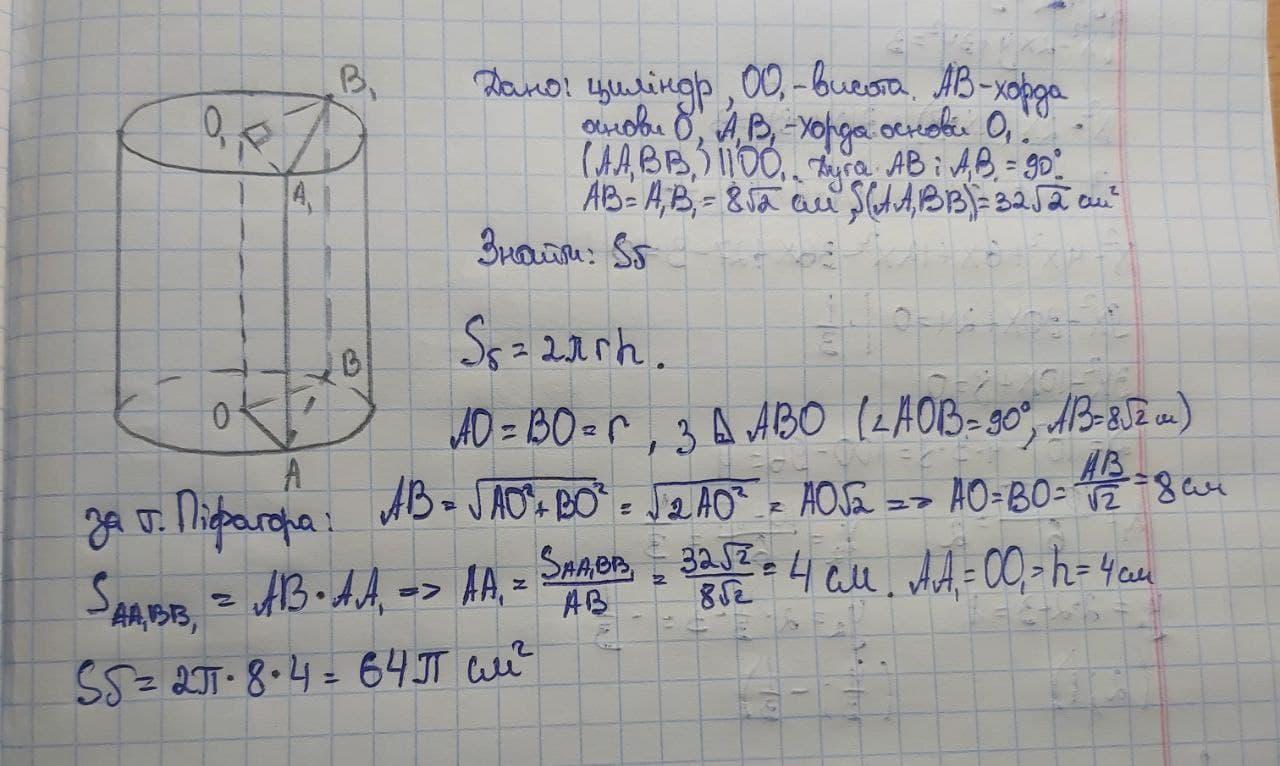 Дано: циліндр, OO₁-висота. AB-хорда
основи O, A₁B₁-хорда основи O₁.
(AA₁BB₁)||OO₁. Дуга AB і A₁B₁=90°
AB=A₁B₁=8√2 см, S(AA₁BB₁)=32√2 см²
Знайти: Sб
B₁
O₁
A₁
B
O
A
Sб=2πrh.
AO=BO=r, з ⊿ABO (∠AOB=90°, AB=8√2 см)
за т. Піфагора: AB=√(AO²+BO²)=√(2AO²)=AO√2 => AO=BO=AB/√2=8 см
S_AA₁BB₁=AB·AA₁ => AA₁=S_AA₁BB₁/AB=32√2/8√2=4 см. AA₁=OO₁=h=4 см
Sб=2π·8·4=64π см²